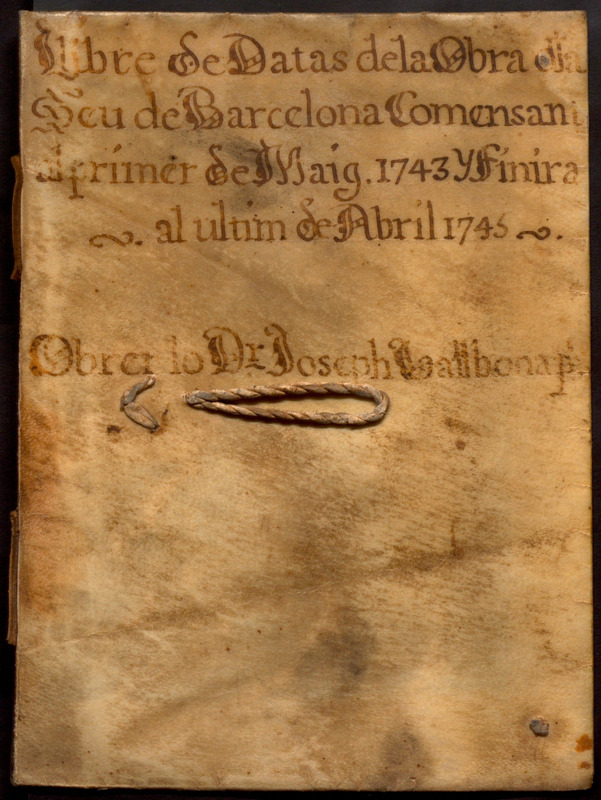 Llibre de Datas dela Obra dla
Seu de Barcelona Comensant
al primer de Maig. 1743 y Finira
al ultim de Abril 1745
Obrer lo Dr. Joseph Vallbona p.